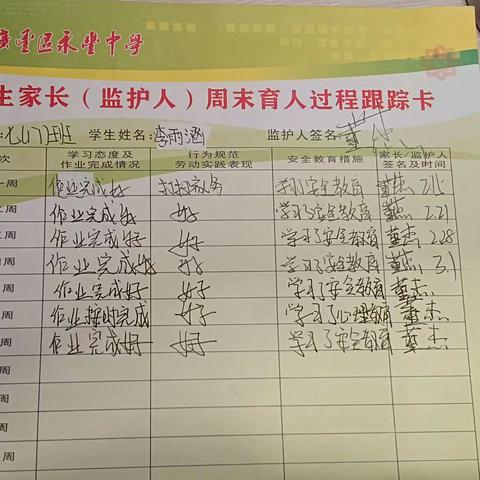 廣豐區永豐中學
生家长（监护人）周末育人过程跟踪卡
班 学生姓名: 李雨涵 监护人签名: 董杰
次 学习态度及作业完成情况 行为规范劳动实践表现 安全教育措施 家长/监护人签名及时间
一周 作业完成好 家务 学习安全教育 董杰 2.15
周 作业完成好 好 学习了安全教育 董杰 2.21
周 作业完成好 好 学习了安全教育 董杰 2.28
周 作业完成好 好 学习了安全教育 董杰 3.1
周 作业完成好 好 学习了安全教育 董杰
周 作业按时完成 好 学习了心理教育 董杰
周 作业完成好 好 学习了安全教育 董杰
周
周
周
周